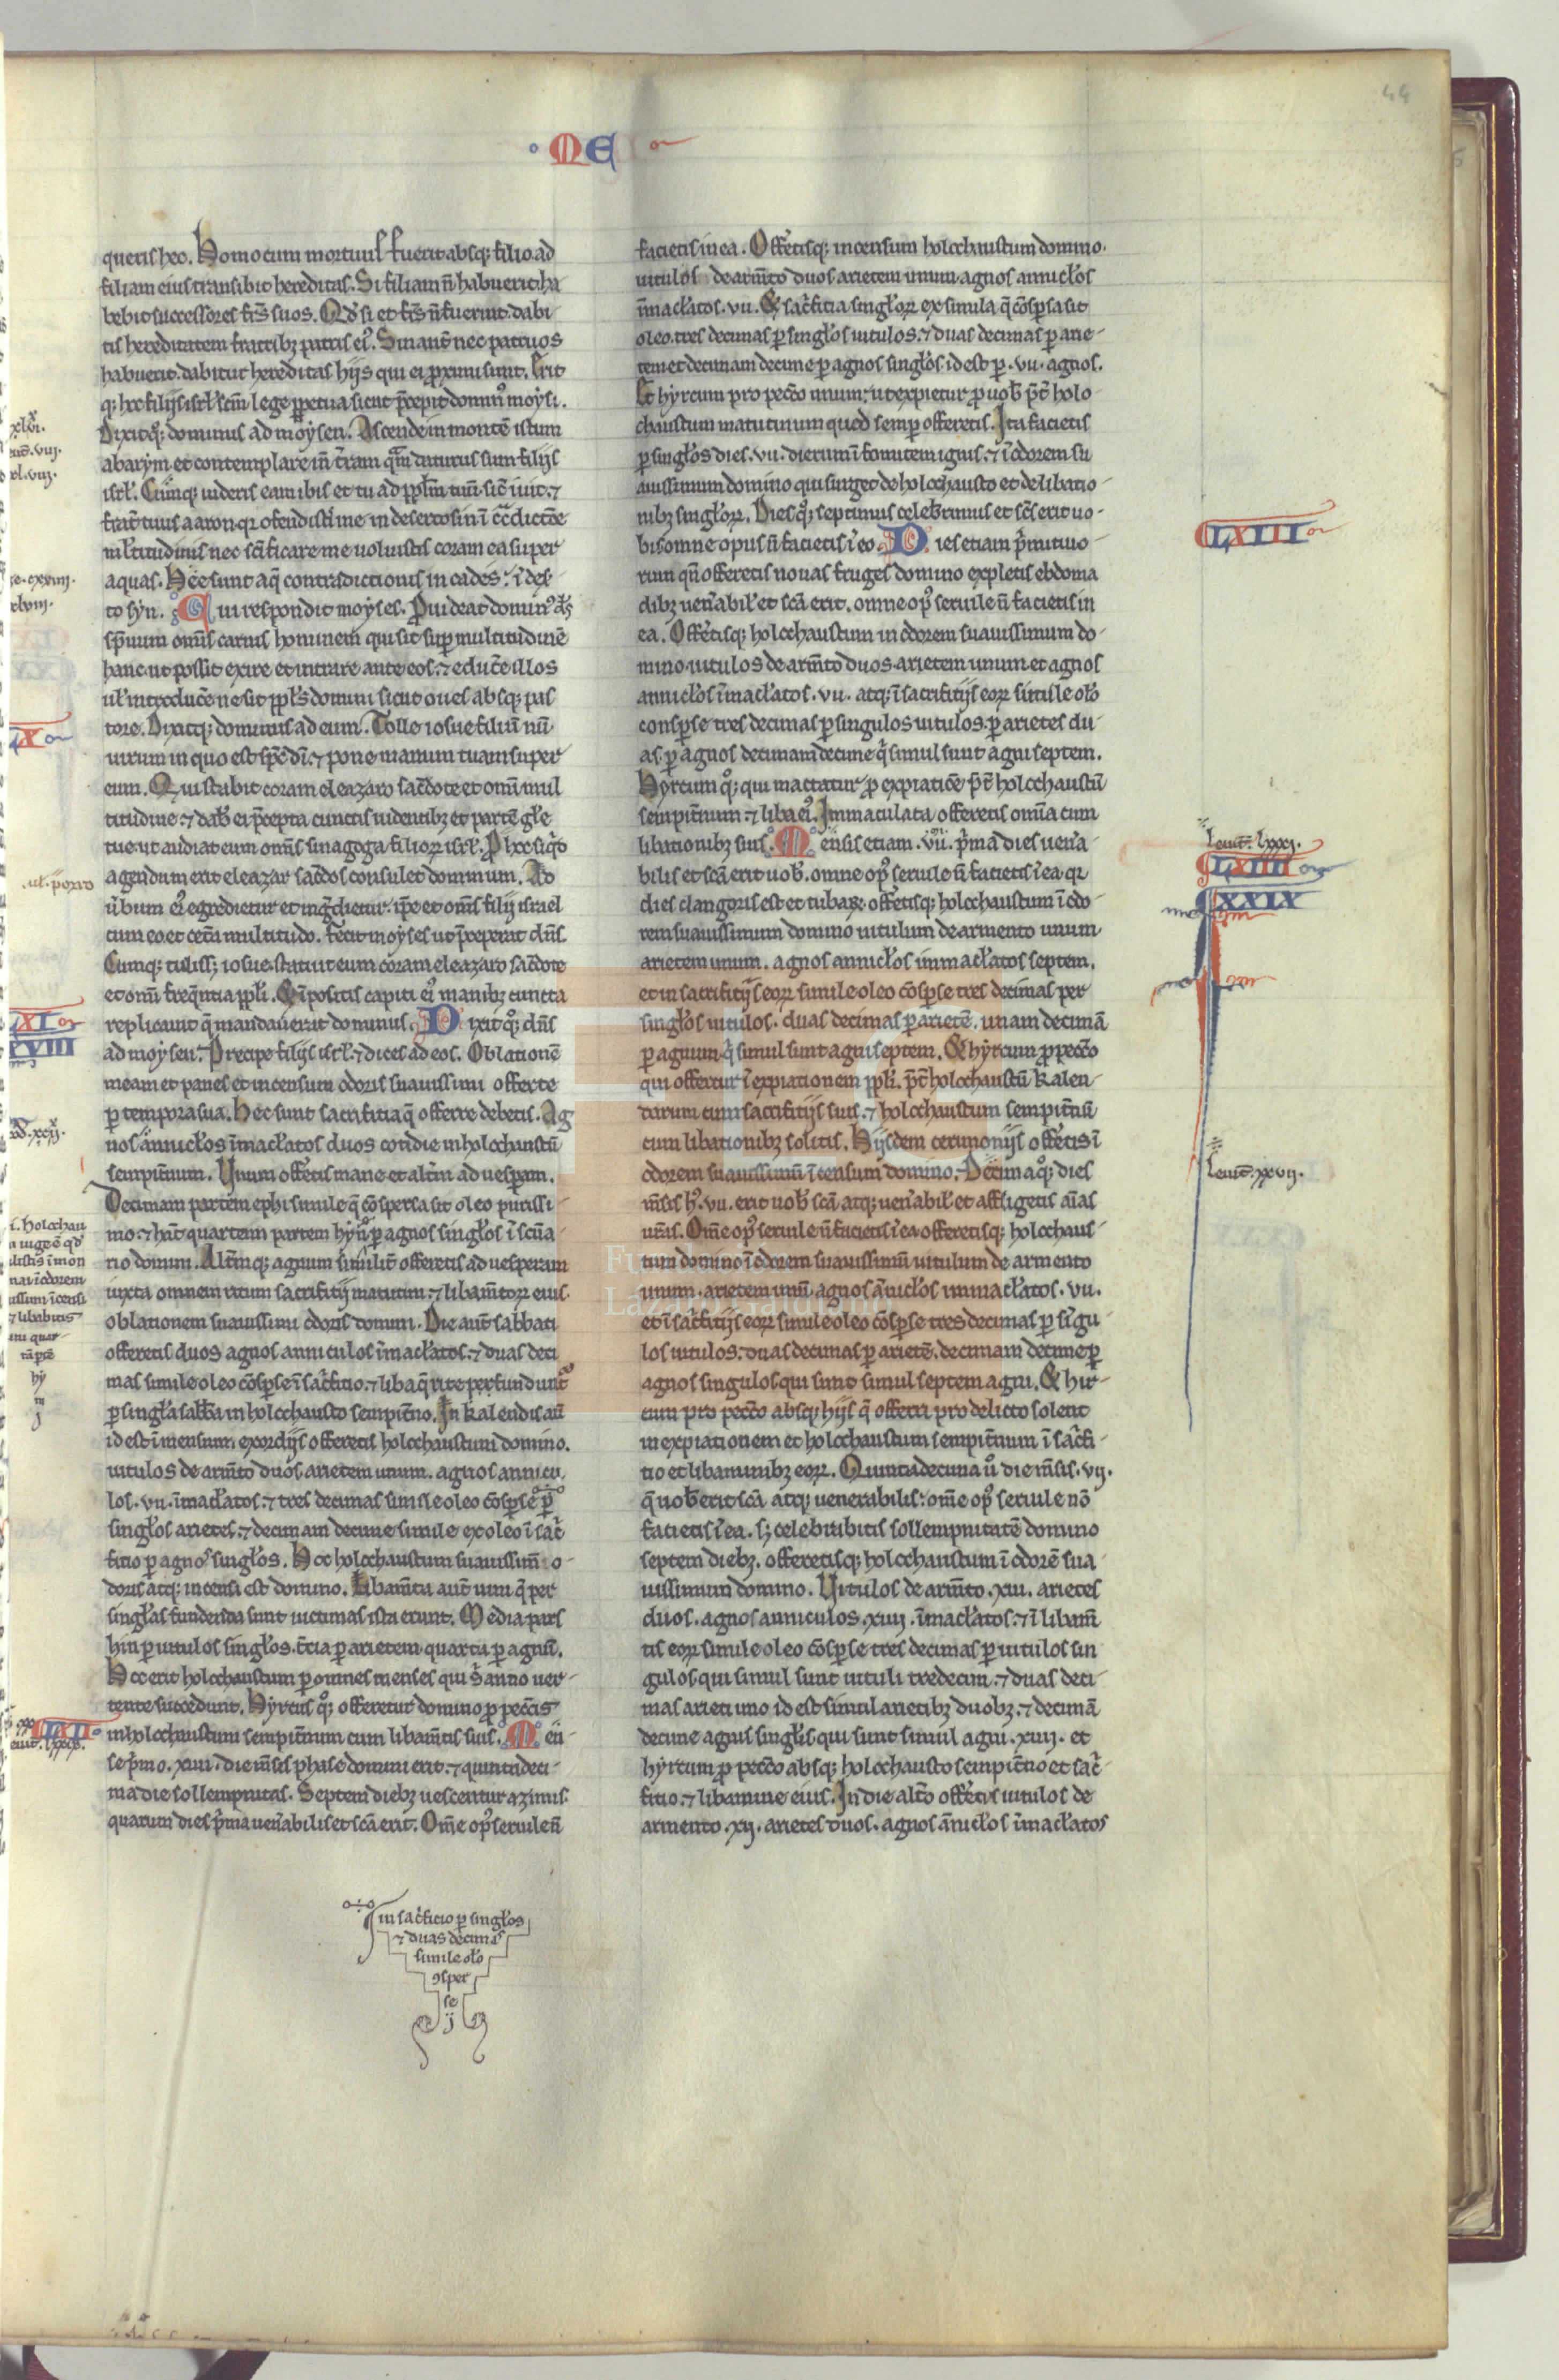 44
ME
queris hec. Homo cum mortuus fuerit absq; filio ad
filiam eius transibit hereditas. Si filiam n̄ habuerit ha
bebit successores fr̄s suos. Qd̓ si et fr̄s n̄ fuerint dabi
tis hereditatem fratribꝫ patris eiꝰ. Sin aut̄ nec patruos
habuerit dabitur hereditas hijs qui ei ꝓximi sunt. Erit
q; hec filijs isrł scm̄ lege ꝑpetua sicut p̄cepit dominꝰ moysi.
Dixitq; dominus ad moysen. Ascende in montē istum
abarym et contemplare in̄ t̄ram qm̄ daturus sum filijs
isrł. Cumq; uideris eam ibis et tu ad ppłm tuū sic̄ iuit ⁊
frat̄ tuus aaron qr offendisti me in deserto sin ī c̄cdictōe
młtitudinis nec sc̄ificare me uoluistis coram ea super
aquas. Hee sunt aq̄ contradictionis in cades ī des̄
to syn. Cui respondit moyses. Prouideat dominꝰ ds̄
sp̄uum om̄is carnis hominem qui sit suꝑ multitudinē
hanc ut possit exire et intrare ante eos. ⁊ educ̄e illos
uł introduc̄e ne sit ppłs domini sicut oues absq; pas
tore. Dixitq; dominus ad eum. Tolle iosue filiū nū
uirum in quo est sp̄c dī. ⁊ pone manum tuam super
eum. Qui stabit coram eleazaro sac̄dote et omī mul
titudine ⁊ dab̄ ei p̄cepta cunctis uidentibꝫ et partē głe
tue. ut audiat eum om̄is sinagoga filioꝝ isrł. P̄ hec siq̄d
agendum erit eleazar sac̄dos consulet dominum. Ad
ūbum eiꝰ egredietur et ingdietur. ip̄e et om̄s filij israel
cum eo. et cet̄a multitudo. Fecit moyses ut p̄ceperat dn̄s.
Cumq; tulissꝫ iosue. statuit eum coram eleazaro sac̄dote
et omī freq̄ntia ppłi. Et īpositis capiti eiꝰ manibꝫ cuncta
replicauit q̄ mandauerat dominus. Dixit qꝫ dn̄s
ad moysen. Precipe filijs isrł. ⁊ dices ad eos. Oblationē
meam et panes et incensum odoris suauissimi offerte
ꝑ tempora sua. Hec sunt sacrifitia q̄ offerre debetis. Ag
nos annicłos īmacłatos duos cotidie in holochaustū
sempit̄num. Unum offeretis mane et alt̄m ad uesꝑam.
Decimam partem ephi simile q̄ cōspersa sit oleo purissi
mo. ⁊ hat̄ quartem partem hyn. ꝑ agnos singłos ī scīna
rio domini. Alt̄mq; agnum simulit̄ offeretis ad uesperam
iuxta omnem ritum sacrifitij matutini. ⁊ libam̄toꝝ eius.
oblationem suauissimi odoris domini. Die aut̄ sabbati
offeretis duos agnos anniculos īmacłatos. ⁊ duas deci
mas simile oleo cōsꝑse ī sac̄fitio. ⁊ liba q̄ rite perfundunt̄
ꝑ singła sabba in holochausto sempit̄no. In kalendis aut̄
id est ī mensium exordijs offeretis holochaustum domino.
uitulos de arm̄to duos arietem unum. agnos annicu
los. vii. īmacłatos. ⁊ tres decimas simile oleo cōsꝑse ꝑ
singłos arietes. ⁊ decimam decime simile ex oleo ī sac̄
fitio ꝑ agnos singłos. Hoc holochaustum suauissimi o
doris atq; incensi est domino. Libam̄ta aut̄ uini q̄ per
singłas fundenda sunt uictimas ista erunt. Media pars
hin ꝑ uitulos singłos. t̄cia ꝑ arietem quarta ꝑ agnū.
Hoc erit holochaustum ꝑ omnes menses qui s̄ anno uer
tente succedunt. Hyrcus qꝫ offeretur domino ꝓ pecc̄tis
in holochaustum sempit̄num cum libam̄tis suis. Men̄
se p̄mo. xiiii. die m̄sis phase domini erit. ⁊ quintadeci
ma die sollempnitas. Septem diebꝫ uescentur azimis.
quarum dies p̄ma uen̄abilis et sc̄a erit. Om̄e opꝰ seruile n̄
facietis in ea. Offeretisq; incensum holochaustum domino.
uitulos de arm̄to duos arietem unum agnos annicłos
īmacłatos. vii. Et sac̄fitia singłoꝝ ex simila q̄ cōsꝑsa sit
oleo. tres decimas ꝑ singłos uitulos. ⁊ duas decimas ꝑ arie
tem et decimam decime ꝑ agnos singłos. id est ꝑ. vii. agnos.
Et hyrcum pro pecc̄o unum. ut expietur ꝓ uob̄ p̄t̄ holo
chaustum matutinum quod semꝑ offeretis. Ita facietis
ꝑ singłos dies. vii. dierum ī fomitem ignis. ⁊ ī odorem su
auissimum domino qui surget de holochausto et de libatio
nibꝫ singłoꝝ. Dies qꝫ septimus celeb̄rimus et sc̄s erit uo
bis omne opus n̄ facietis ī eo. Dies etiam p̄mitiuo
rum qn̄ offeretis nouas fruges domino expletis ebdoma
dibꝫ uen̄abił et sc̄a erit. omne opꝰ seruile n̄ facietis in
ea. Offeretisq; holochaustum in odorem suauissimum do
mino. uitulos de arm̄to duos. arietem unum et agnos
annicłos īmacłatos. vii. atq; ī sacrifitijs eoꝝ simile oło
consꝑse tres decimas ꝑ singulos uitulos. ꝑ arietes du
as. ꝑ agnos decimam decime q̄ simul sunt agni septem.
Hyrcum qꝫ qui mactatur ꝓ expiatiōe. p̄t̄ holochaustū
sempit̄num ⁊ liba eiꝰ. Immaculata offeretis omīa cum
libationibꝫ suis. Mensis etiam. vii. p̄ma dies uen̄a
bilis et sc̄a erit uob̄. omne opꝰ seruile n̄ facietis ī ea qr
dies clangoris est et tubaꝝ. offeretisq; holochaustum ī odo
rem suauissimum domino uitulum de armento unum
arietem unum. agnos annicłos immacłatos septem.
et in sacrifitijs eoꝝ simile oleo cōsꝑse tres decimas per
singłos uitulos. duas decimas ꝑ arietē. unam decimā
ꝑ agnum. q̄ simul sunt agni septem. Et hyrcum ꝓ pecc̄o
qui offertur ī expiationem ppłi. p̄t̄ holochaustū kalen
darum cum sacrifitijs suis. ⁊ holochaustum sempit̄nū
cum libationibꝫ solitis. Hijsdem cerimonijs offeretis ī
odorem suauissimū īcensum domino. Decima qꝫ dies
m̄sis hꝰ. vii. erit uob̄ sc̄a atq; uen̄abił et affligetis aīas
ur̄as. Om̄e opꝰ seruile n̄ facietis ī ea offeretisq; holochaus
tum domino ī odorem suauissimū uitulum de armento
unum. arietem unū. agnos āniclos immacłatos. vii.
et ī sac̄fitijs eoꝝ simile oleo cōsꝑse tres decimas ꝑ sīgu
los uitulos. duas decimas ꝑ arietē. decimam decime ꝑ
agnos singulos qui sunt simul septem agni. Et hir
cum pro pecc̄o absq; hijs q̄ offerri pro delicto solent
in expiationem et holochaustum sempit̄num ī sac̄fi
tio et libaminibꝫ eoꝝ. Quintadecima ū die m̄sis. vij.
q̄ uob̄ erit sc̄a atq; uenerabilis. om̄e opꝰ seruile nō
facietis ī ea. sꝫ celebrabitis sollempnitatē domino
septem diebꝫ. offeretisq; holochaustum ī odorē sua
uissimum domino. Uitulos de arm̄to. xiii. arietes
duos. agnos anniculos. xiiij. īmacłatos. ⁊ ī libam̄
tis eoꝝ simile oleo cōsꝑse tres decimas ꝑ uitulos sin
gulos qui simul sunt uituli tredecim. ⁊ duas deci
mas arieti uno id est simul arietibꝫ duobꝫ. ⁊ decimā
decime agnis singłis qui sunt simul agni. xiiij. et
hyrcum ꝓ pecc̄o absq; holochausto sempit̄no et sac̄
fitio. ⁊ libamine eius. In die alt̄o offeretis uitulos de
armento. xij. arietes duos. agnos āniclos īmacłatos
LXIII
leuit̄. lxxxj.
LXIIII
XXIX
leuit̄. xxvij.
uł. porro
LXII
in sac̄ficio ꝑ singłos
⁊ duas decimas
simile oło
ꝯsper
se
ij
Fundación
Lázaro Galdiano